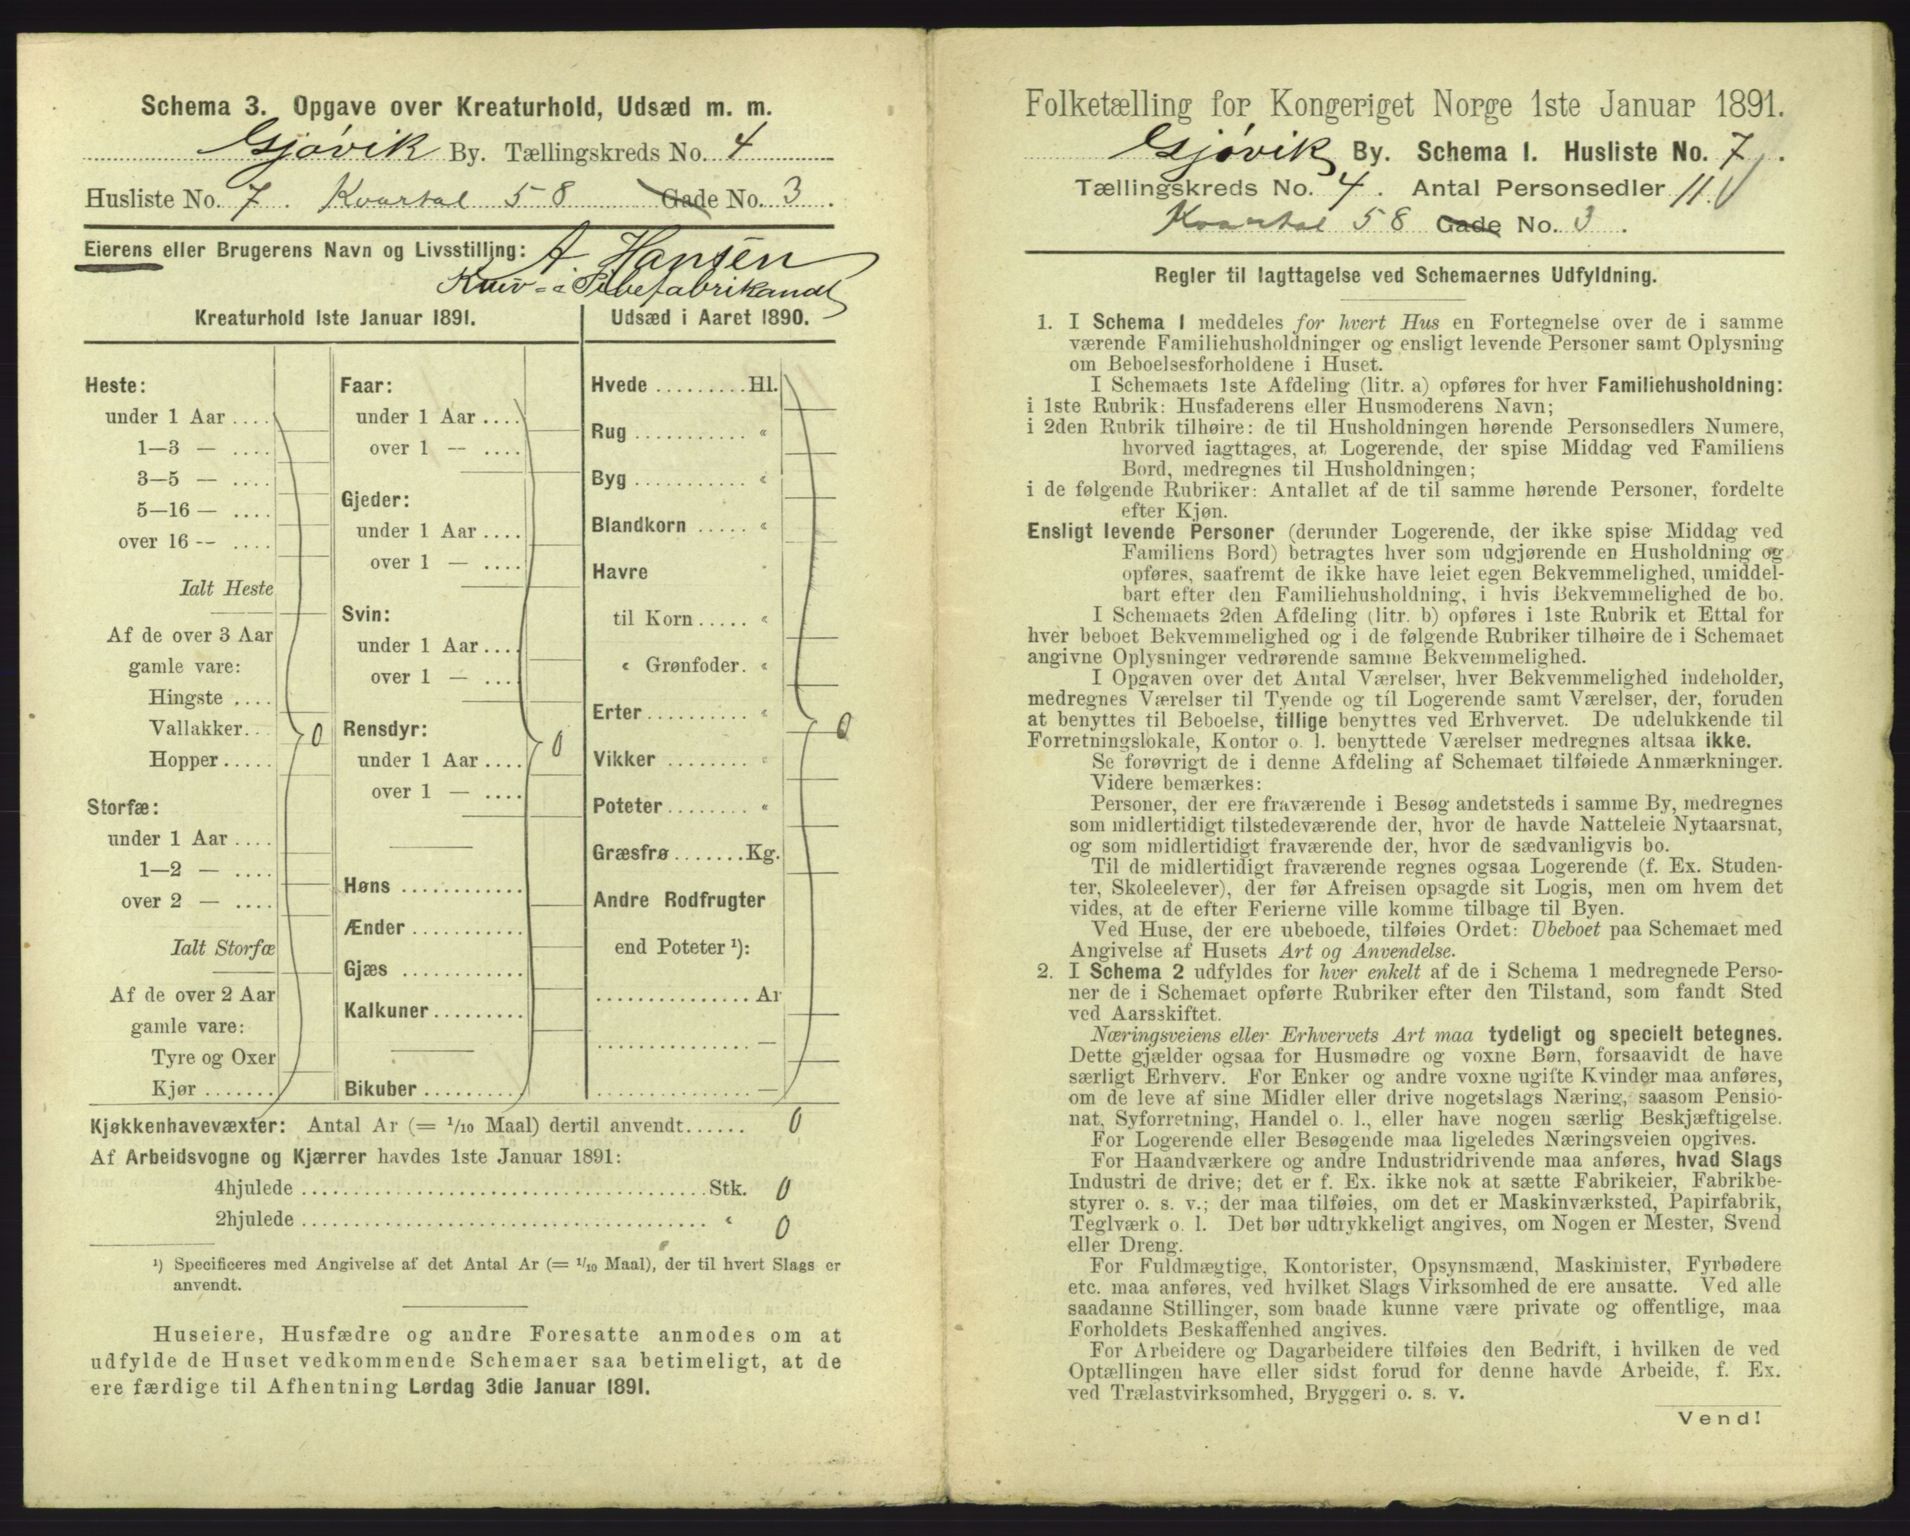 Schema 3. Opgave over Kreaturhold, Udsæd m. m.
Gjøvik By. Tællingskreds No. 4
Husliste No. 7. Kvartal 58 Gade No. 3.
Eierens eller Brugerens Navn og Livsstilling: A. Hansen
Kniv- Pibefabrikandt
Kreaturhold 1ste Januar 1891.
Heste:
under 1 Aar ....
1—3 — ....
3—5 — ....
5—16 — ....
over 16 -- ....
Ialt Heste
Af de over 3 Aar
gamle vare:
Hingste ....
Vallakker.. 0
Hopper .....
Storfæ:
under 1 Aar ....
1—2 — ....
over 2 — ....
Ialt Storfæ
Af de over 2 Aar
gamle vare:
Tyre og Oxer
Kjør .......
Faar:
under 1 Aar ....
over 1 — ....
Gjeder:
under 1 Aar ....
over 1 — ....
Svin:
under 1 Aar ....
over 1 — ....
Rensdyr:
under 1 Aar .... 0
over 1 — ....
Høns ............
Ænder ...........
Gjæs ............
Kalkuner .........
Bikuber ..........
Udsæd i Aaret 1890.
Hvede ......... Hl.
Rug ........... «
Byg ........... «
Blandkorn ..... «
Havre
til Korn ..... «
« Grønfoder. «
Erter .......... « 0
Vikker ........ «
Poteter ........ «
Græsfrø ....... Kg.
Andre Rodfrugter
end Poteter ¹):
............... Ar
............... —
............... —
Kjøkkenhavevæxter: Antal Ar (= 1/10 Maal) dertil anvendt...... 0
Af Arbeidsvogne og Kjærrer havdes 1ste Januar 1891:
4hjulede ........................................ Stk. 0
2hjulede ........................................ « 0
¹) Specificeres med Angivelse af det Antal Ar (= 1/10 Maal), der til hvert Slags er
anvendt.
Huseiere, Husfædre og andre Foresatte anmodes om at
udfylde de Huset vedkommende Schemaer saa betimeligt, at de
ere færdige til Afhentning Lørdag 3die Januar 1891.
Folketælling for Kongeriget Norge 1ste Januar 1891.
Gjøvik By. Schema 1. Husliste No. 7.
Tællingskreds No. 4. Antal Personsedler 11.
Kvartal 58 Gade No. 3.
Regler til Iagttagelse ved Schemaernes Udfyldning.
1. I Schema 1 meddeles for hvert Hus en Fortegnelse over de i samme
værende Familiehusholdninger og ensligt levende Personer samt Oplysning
om Beboelsesforholdene i Huset.
I Schemaets 1ste Afdeling (litr. a) opføres for hver Familiehusholdning:
i 1ste Rubrik: Husfaderens eller Husmoderens Navn;
i 2den Rubrik tilhøire: de til Husholdningen hørende Personsedlers Numere,
hvorved iagttages, at Logerende, der spise Middag ved Familiens
Bord, medregnes til Husholdningen;
i de følgende Rubriker: Antallet af de til samme hørende Personer, fordelte
efter Kjøn.
Ensligt levende Personer (derunder Logerende, der ikke spise Middag ved
Familiens Bord) betragtes hver som udgjørende en Husholdning og
opføres, saafremt de ikke have leiet egen Bekvemmelighed, umiddel-
bart efter den Familiehusholdning, i hvis Bekvemmelighed de bo.
I Schemaets 2den Afdeling (litr. b) opføres i 1ste Rubrik et Ettal for
hver beboet Bekvemmelighed og i de følgende Rubriker tilhøire de i Schemaet
angivne Oplysninger vedrørende samme Bekvemmelighed.
I Opgaven over det Antal Værelser, hver Bekvemmelighed indeholder,
medregnes Værelser til Tyende og til Logerende samt Værelser, der, foruden
at benyttes til Beboelse, tillige benyttes ved Erhvervet. De udelukkende til
Forretningslokale, Kontor o. l. benyttede Værelser medregnes altsaa ikke.
Se forøvrigt de i denne Afdeling af Schemaet tilføiede Anmærkninger.
Videre bemærkes:
Personer, der ere fraværende i Besøg andetsteds i samme By, medregnes
som midlertidigt tilstedeværende der, hvor de havde Natteleie Nytaarsnat,
og som midlertidigt fraværende der, hvor de sædvanligvis bo.
Til de midlertidigt fraværende regnes ogsaa Logerende (f. Ex. Studen-
ter, Skoleelever), der før Afreisen opsagde sit Logis, men om hvem det
vides, at de efter Ferierne ville komme tilbage til Byen.
Ved Huse, der ere ubeboede, tilføies Ordet: Ubeboet paa Schemaet med
Angivelse af Husets Art og Anvendelse.
2. I Schema 2 udfyldes for hver enkelt af de i Schema 1 medregnede Perso-
ner de i Schemaet opførte Rubriker efter den Tilstand, som fandt Sted
ved Aarsskiftet.
Næringsveiens eller Erhvervets Art maa tydeligt og specielt betegnes.
Dette gjælder ogsaa for Husmødre og voxne Børn, forsaavidt de have
særligt Erhverv. For Enker og andre voxne ugifte Kvinder maa anføres,
om de leve af sine Midler eller drive nogetslags Næring, saasom Pensio-
nat, Syforretning, Handel o. l., eller have nogen særlig Beskjæftigelse.
For Logerende eller Besøgende maa ligeledes Næringsveien opgives.
For Haandværkere og andre Industridrivende maa anføres, hvad Slags
Industri de drive; det er f. Ex. ikke nok at sætte Fabrikeier, Fabrikbe-
styrer o. s. v.; der maa tilføies, om det er Maskinværksted, Papirfabrik,
Teglværk o. l. Det bør udtrykkeligt angives, om Nogen er Mester, Svend
eller Dreng.
For Fuldmægtige, Kontorister, Opsynsmænd, Maskinister, Fyrbødere
etc. maa anføres, ved hvilket Slags Virksomhed de ere ansatte. Ved alle
saadanne Stillinger, som baade kunne være private og offentlige, maa
Forholdets Beskaffenhed angives.
For Arbeidere og Dagarbeidere tilføies den Bedrift, i hvilken de ved
Optællingen have eller sidst forud for denne havde Arbeide, f. Ex.
ved Trælastvirksomhed, Bryggeri o. s. v.
Vend!